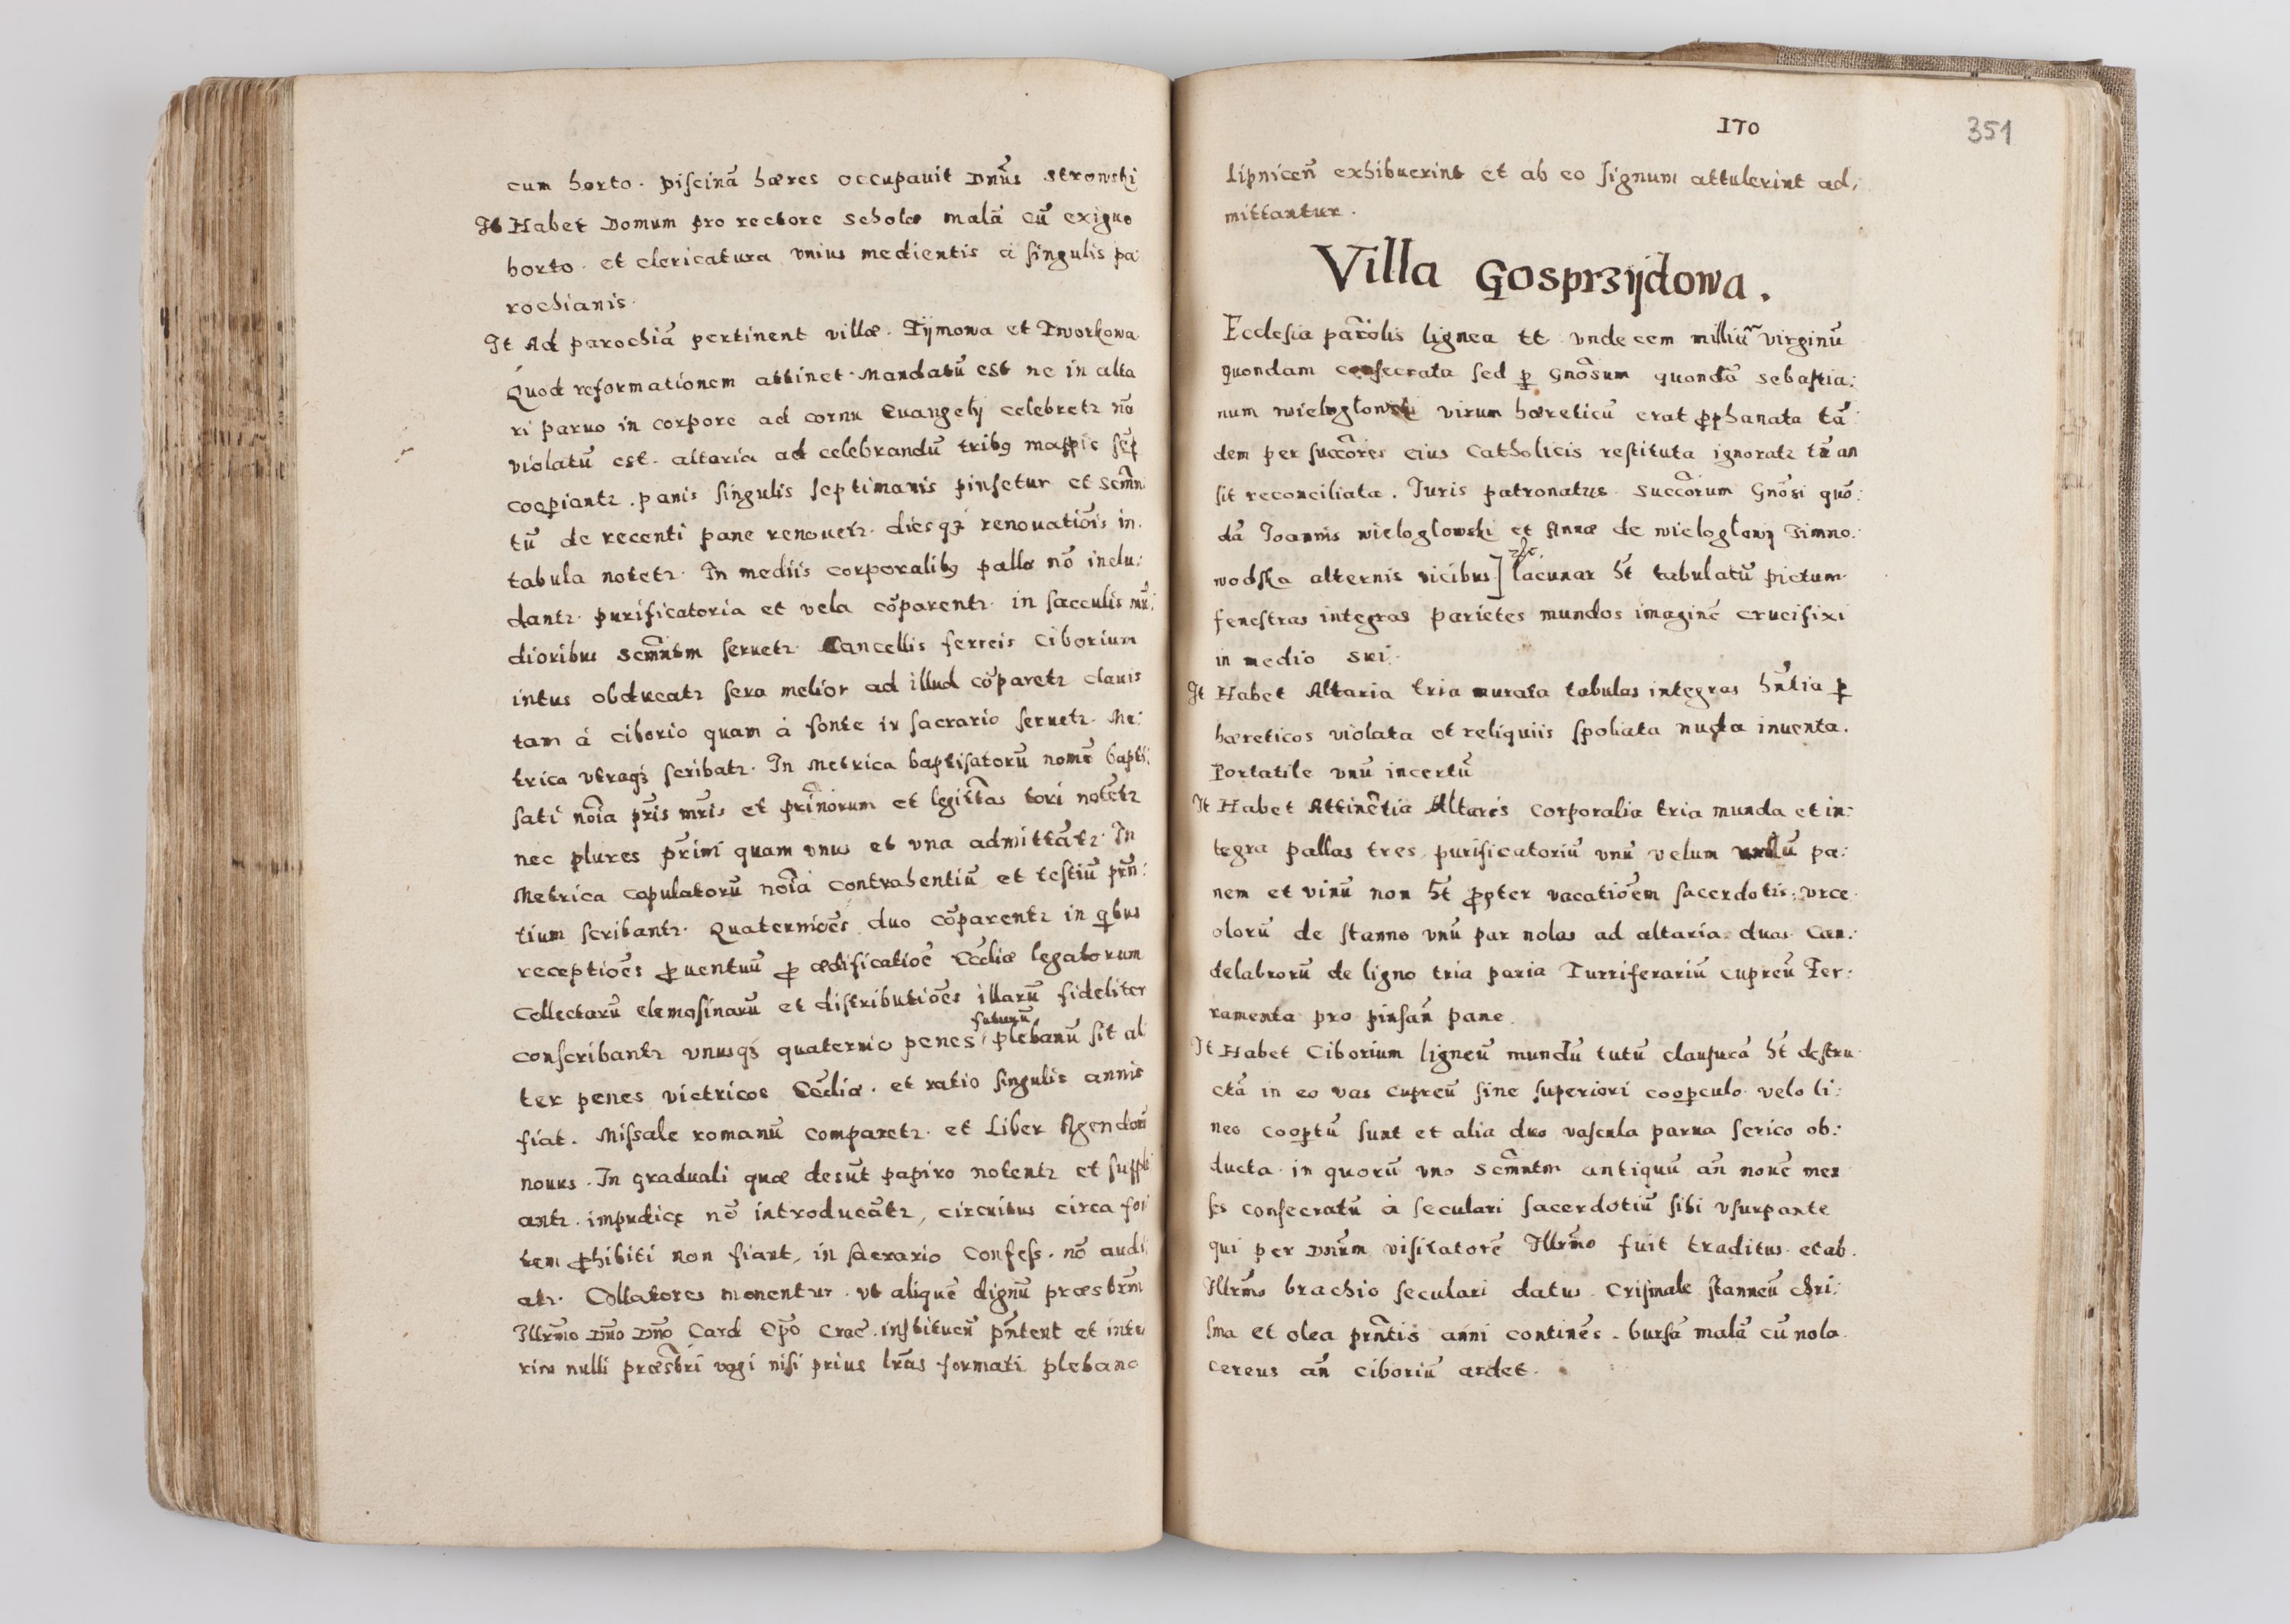 cum horto. piscinā hæres occupauit Dnūs Strowski
It Habet Domum pro rectore scholæ malā cū exiguo
horto. et clericatura vnius medientis à singulis pa:
rochianis.
It Ad parochiā pertinent villæ. Tÿmowa et Tworkowa
Quod reformationem attinet. Mandatū est ne in alta
ri paruo in corpore ad cornu Euangelÿ celebretr nā
violatū est. altaria ad celebrandū tribq mappis sēp
cooꝑiantr. panis singulis septimanis pinsetur et scm̄n
tū de recenti pane renouetr. diesqꝫ renouatiōis in.
tabula notetr. In mediis corporalibq palla nō inclu:
dantr. purificatoria et vela cōparentr. in sacculis mū:
dioribus scm̄ntm seruetr. Cancellis ferreis Ciborium
intus obducatr sera melior ad illud cōparetr clauis
tam à ciborio quam à fonte in sacrario seruetr. Me:
trica vtraqꝫ scribatr. In Metrica baptisatorū nomē bapti:
sati noīa pr̄is mr̄is et prīnorum et legitt̄as tori notētr
nec plures pr̄imi quam vnus et vna admittātr. In
Metrica copulatorū noīa contrahentiū et testiū prn̄:
tium scribantr. Quaterniōēs duo cōparentr in qbus
receptiōēs ꝓuentuū ꝓ ædificatiōē Ecc̄liæ legatorum
Collectarū elemosinarū et distributiōēs illarū fideliter
conscribantr vnusqꝫ quaternio penes futurū plebanū sit al
ter penes vietricos Ecc̄liæ. et ratio singulis annis
fiat. Missale romanū comparetr. et Liber Agendorū
nouus. In graduali quæ desūt papiro notentr et suppli
antr. impudicę nō introducātr, circuitus circa fon
tem ꝓhibiti non fiant, in sacrario Confess. nō audi:
atr. Collatores monentur. vt aliquē dignū præsbrm̄
Illrm̄o Dn̄o Dn̄o Card Ep̄o Crac̄. instituen̄ pn̄tent et inte
rim nulli præsbr̄i vagi nisi prius lrās formati plebano
170
351
Lipnicen̄ exhibuerint et ab eo signum attulerint ad,
mittantur.
Villa Gosprzÿdowa.
Ecclesia parōlis lignea tt vndecem milliū virginū
quondam consecrata sed ꝑ Gnōsum quondā Sebastia:
num wieloglowski virum hæreticū erat ꝓphanata tā
dem per succōres eius Catholicis restituta ignoratr tn̄ an
sit reconciliata. Iuris patronatus succōrum Gnōsi quō:
dā Joannis wieloglowski et Annæ de wieloglowÿ Timno:
wodska alternis vicibus] lacunar ht̄ tabulatū pictum.
fenestras integras parietes mundos imaginē crucifixi
in medio sui.
It Habet Altaria tria murata tabulas integras hn̄tia ꝑ
hæreticos violata et reliquiis spoliata nuda inuenta.
Portatile vnū incertū
It Habet Attinētia Altaris corporalia tria munda et in:
tegra pallas tres, purificatoriū vnū velum pa:
nem et vinū non ht̄ ꝓpter vacatiōem sacerdotis: vrce
olorū de stanno vnū par nolas ad altaria duas can:
delabrorū de ligno tria paria Turriferariū cupreū Fer:
ramenta pro pinsan̄ pane.
It Habet Ciborium ligneū mundū tutū clausurā ht̄ destru
ctā in eo vas cupreū sine superiori cooꝑculo velo li:
neo cooꝑtū sunt et alia duo vascula parua serico ob:
ducta in quorū vno scm̄ntm antiquū an̄ nouē men
ses consecratū à seculari sacerdotiū sibi vsurpante
qui per Dnūm visitatorē Illrm̄o fuit traditus et ab.
Illrm̄o brachio seculari datus. Crismale stanneū chri:
sma et olea prn̄tis anni continēs. bursā malā cū nola
cereus an̄ ciboriū ardet.